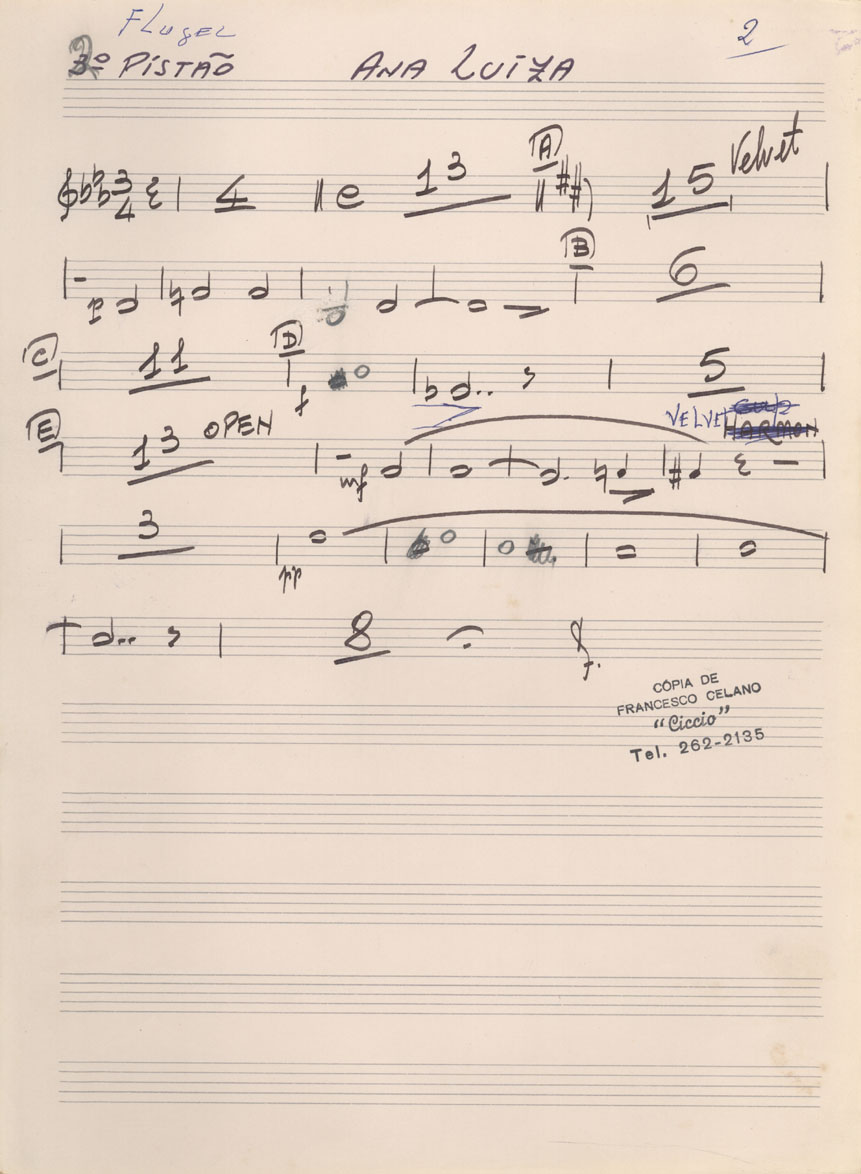 FLUGEL
2
3º PISTÃO ANA LUIZA
3 4 4 C 13 A 15 Velvet
p B 6
C 11 D f 5
E 13 OPEN mf VELVET HARMON
3 pp
8
CÓPIA DE
FRANCESCO CELANO
"Ciccio"
Tel. 262-2135